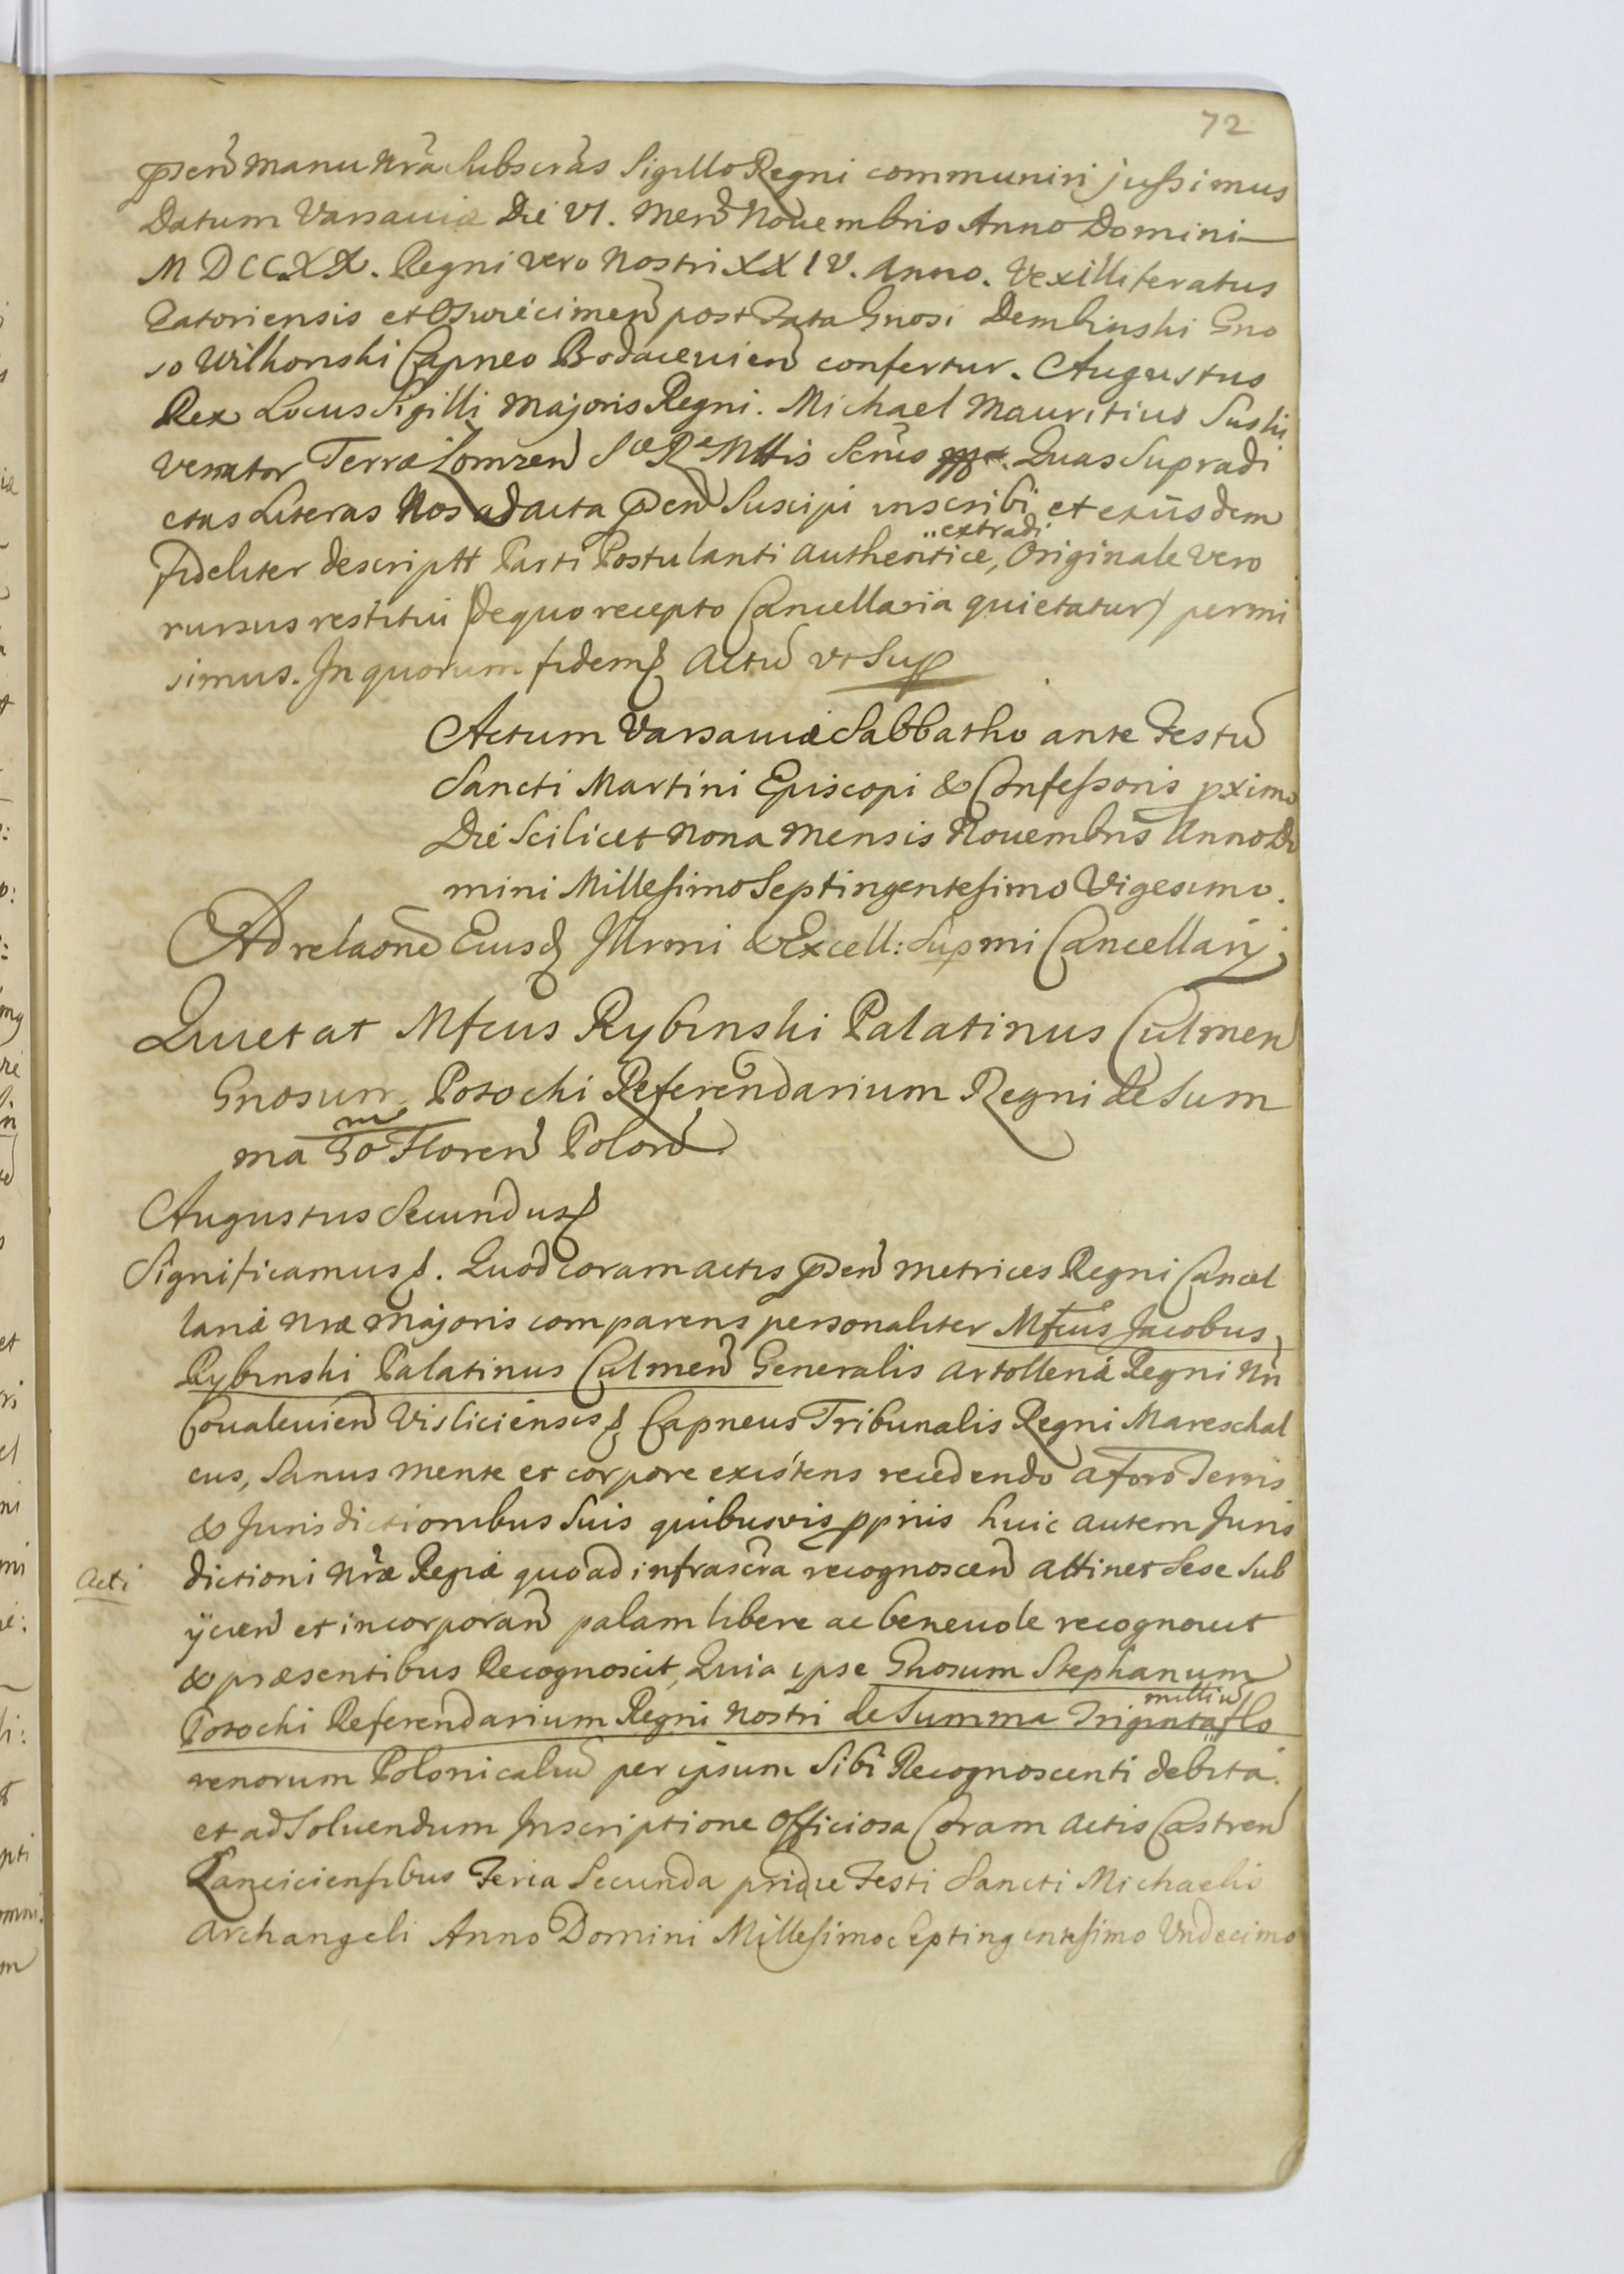 72
pñen manu nra subscras Sigillo Regni communiri jussimus
Datum Varsaviæ Die VI. Men Novembris Anno Domini
MDCCXX. Regni vero Nostri XXIV. Anno. Vexilliferatus
Zatoriensis et Oswiecimen post Fata Gnosi Dembinski Gno
so Wilkonski Capneo Bodacevien confertur. Augustus
Rex Locus Sigilli Majoris Regni. Michael Mauritius Suski
Venator Terræ Lomzen Sæ Ræ Mttis Scrius. Quas Supradi
ctas Literas Nos ad acta pñen Suscipi inscribi et exiisdem
extradi
fideliter descriptt Parti Postulanti authentice, Originale vero
rursus restitui (de quo recepto Cancellaria quietatur) permi
simus. In quorum fidem Actũ vt Sup
Actum Varsaviæ Sabbatho ante Festũ
Sancti Martini Episcopi & Confessoris pximo
Die Scilicet Nona Mensis Novembris Anno Do
mini Millesimo Septingentesimo Vigesimo.
Ad relaone Eiusd Illrmi & Excell: Supmi Cancellarij
Quietat Mfcus Rybinski Palatinus Culmen
Gnosum Potocki Referendarium Regni de Sum
ma 30 m Floren Polon
Augustus Secundus
Significamus. Quod coram actis pñen Metrices Regni Cancel
lariæ Nræ Majoris comparens personaliter Mfcus Jacobus
Rybinski Palatinus Culmen Generalis Artolleriæ Regni Nri
Covalevien Visliciensis Capneus Tribunalis Regni Mareschal
cus, Sanus mente et corpore existens recedendo a Foro Terris
& Jurisdictionibus Suis quibusvis ppriis huic autem Juris
Acti
dictioni Nræ Regiæ quoad infrascra recognoscen attinet Sese Sub
ijcien et incorporan palam libere ac benevole recognovit
& præsentibus Recognoscit, Quia ipse Gnosum Stephanum
Potocki Referendarium Regni Nostri de Summa Triginta milliũ flo
renorum Polonicaliũ per ipsum Sibi Recognoscenti debita
et ad Solvendum Inscriptione Officiosa Coram Actis Castren
Lanciciensibus Feria Secunda pridie Festi Sancti Michaelis
Archangeli Anno Domini Millesimo Septingentesimo Undecimo